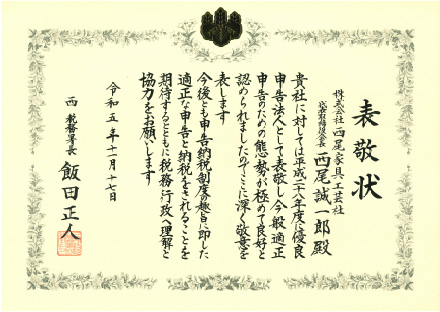 表敬状
株式会社 西尾家具工芸社
代表取締役会長 西尾誠一郎 殿
貴社に対しては平成二十八年度に優良
申告法人として表敬し今般適正
申告のための態勢が極めて良好と
認められましたのでここに深く敬意を
表します
今後とも申告納税制度の趣旨に即した
適正な申告と納税をされることを
期待するとともに税務行政へ理解と
協力をお願いします
令和五年十一月十七日
西税務署長 飯田正人